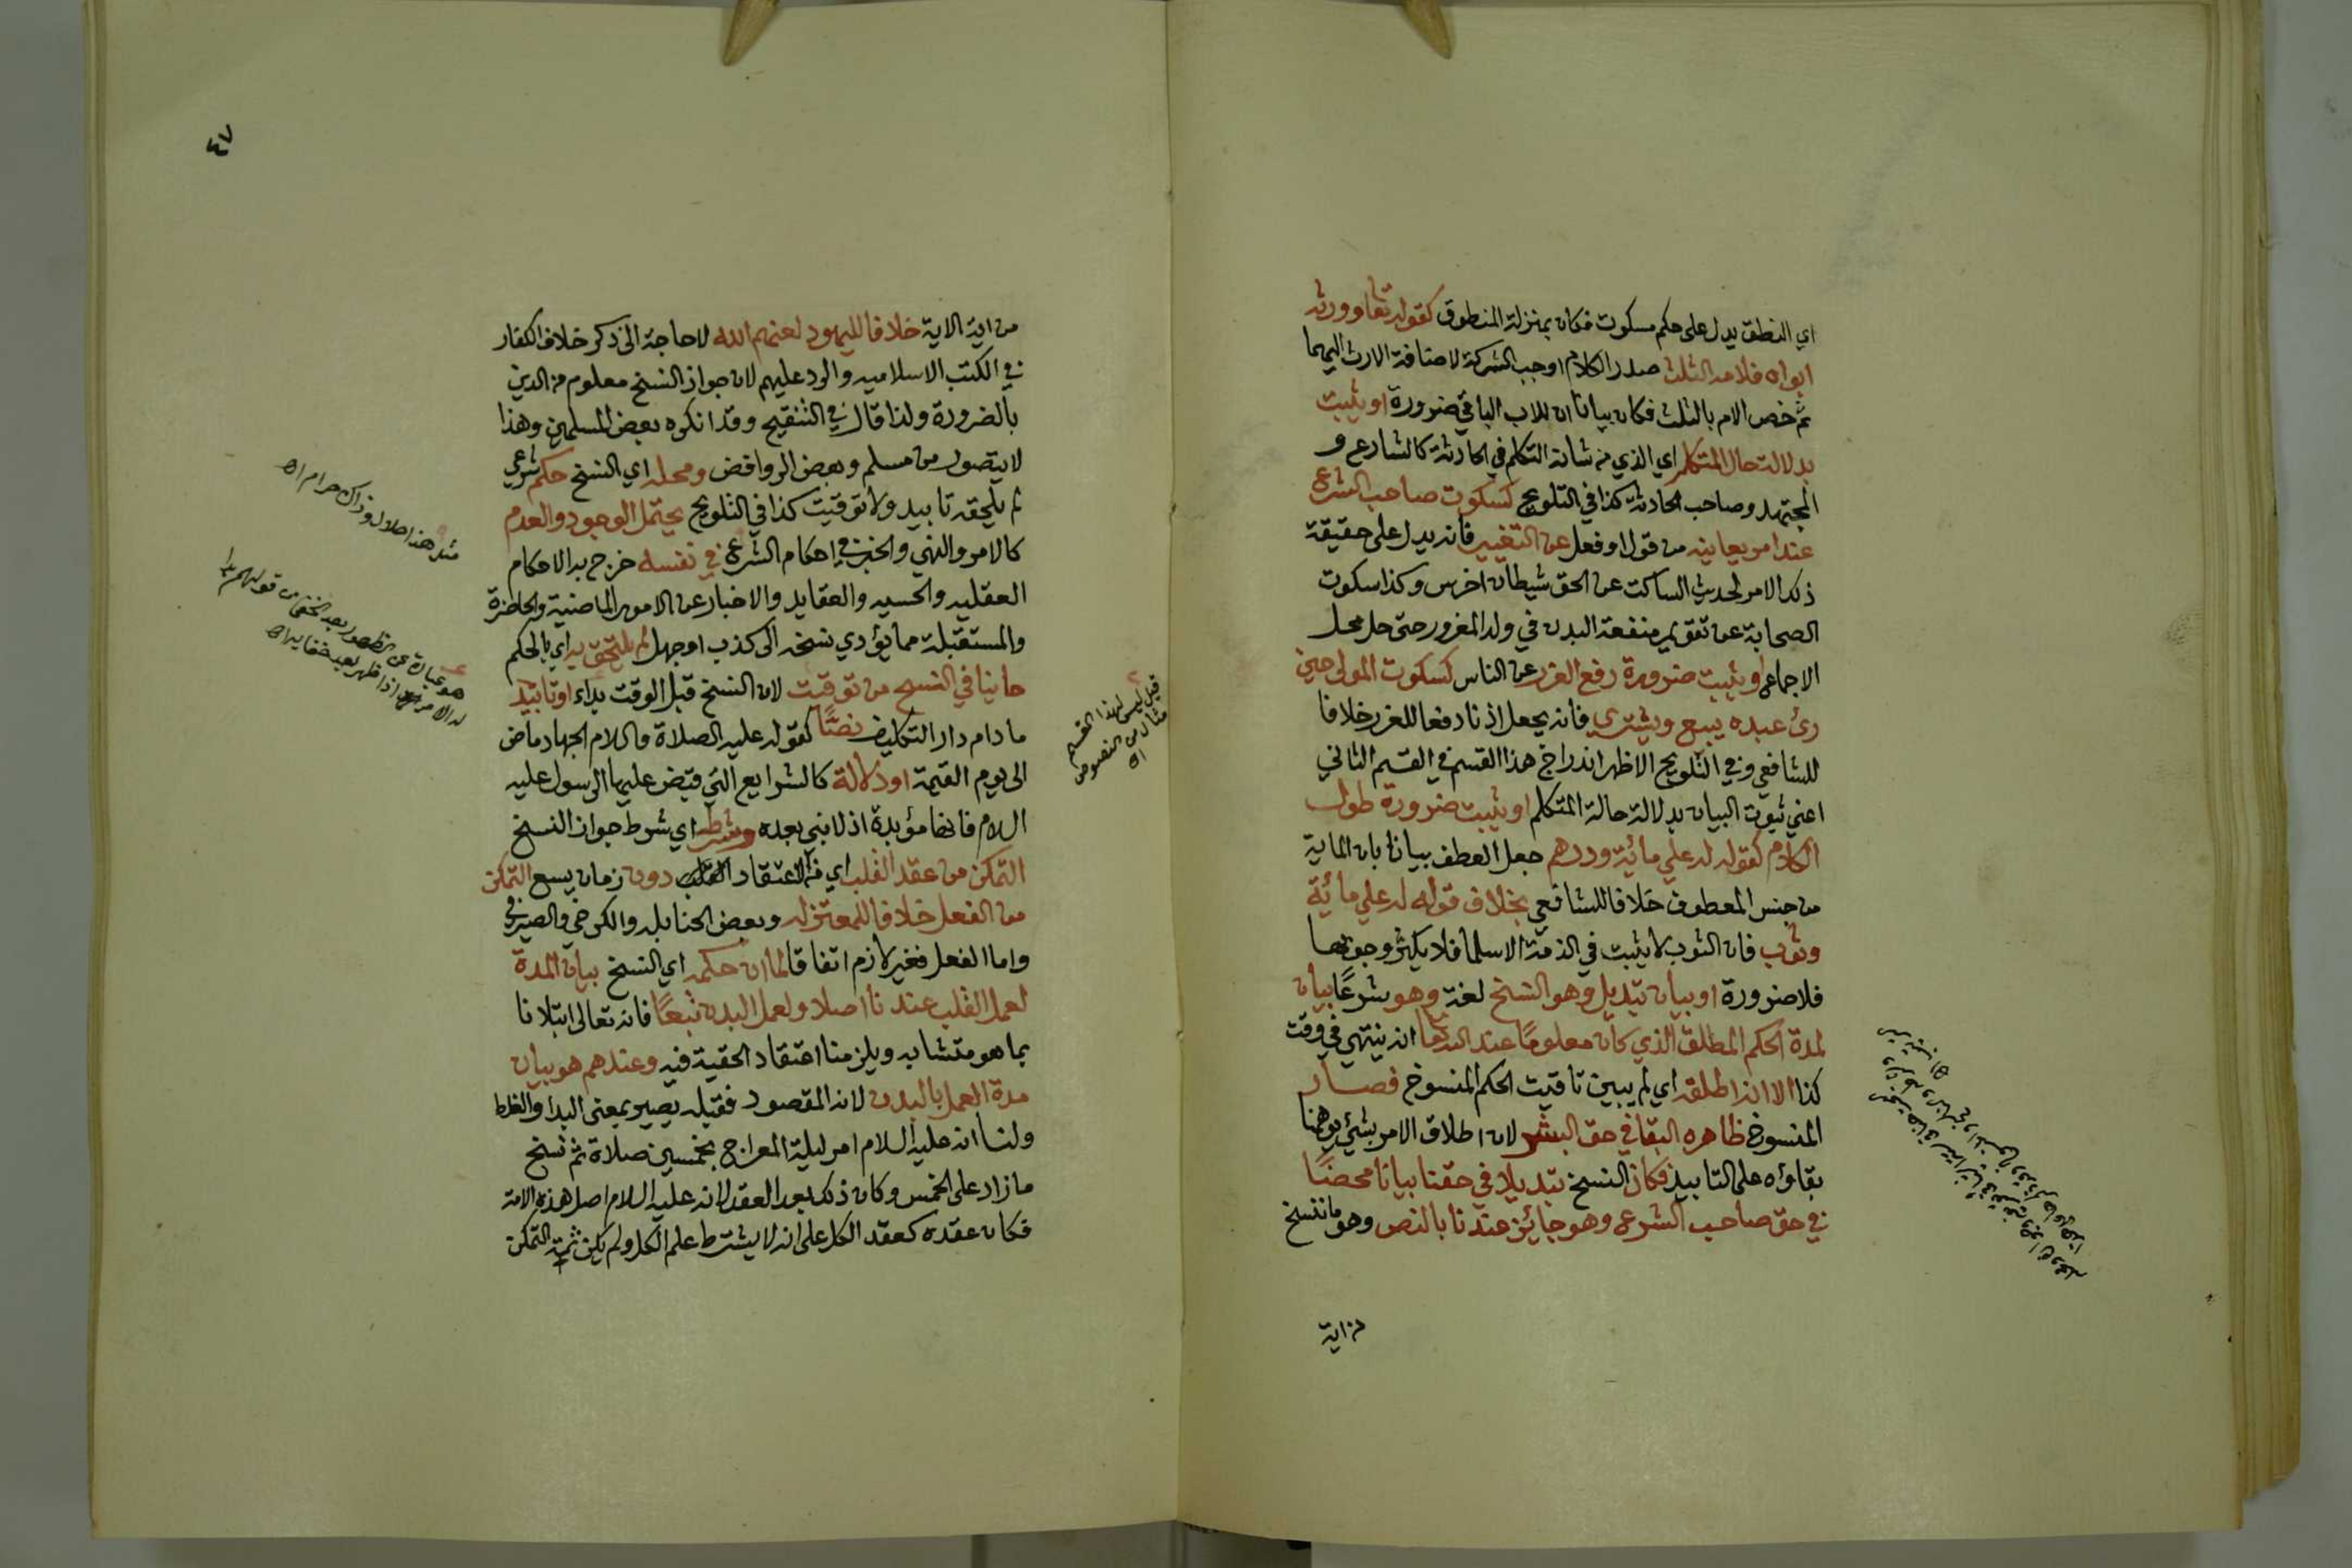 اي النطق يدل على حكم مسكوت فكان بمنزلة المنطوق كقوله تعا وورثه
ابواه فلامه الثلث صدر الكلام اوجب الشركة لاضافة الارث اليهما
ثم خص الام بالثلث فكان بيانا ان للاب الباقي ضرورة او يثبت
بدلالة حال المتكلم اي الذي من شانه التكلم في الحادثة كالشارع و
المجتهد وصاحب الحادثة كذا في التلويح كسكوت صاحب الشرع
عند امر يعاينه من قول او فعل عن التغيير فانه يدل على حقيقة
ذلك الامر لحديث الساكت عن الحق شيطان اخرس وكذا سكوت
الصحابة عن تقويم منفعة البدن في ولد المغرور حتى حل محل
الاجماع او يثبت ضرورة رفع الغرر عن الناس كسكوت المولى حين
رئ عبده يبيع ويشتري فانه يجعل اذنا دفعا للغرر خلافا
للشافعي وفي التلويح الاظهر اندراج هذا القسم في القسم الثاني
اعني ثبوت البيان بدلالة حالة المتكلم او يثبت ضرورة طول
الكلام كقوله له علي مائة ودرهم جعل العطف بيانا بان الماية
من جنس المعطوف خلافا للشافعي بخلاف قوله له علي مائة
وثوب فان الثوب لا يثبت في الذمة الا سلما فلا يكثر وجوبها
فلا ضرورة او بيان تبديل وهو النسخ لغة وهو شرعًا بيان
لمدة الحكم المطلق الذي كان معلومًا عند الله تعا انه ينتهي في وقت
كذا الا انه اطلقه اي لم يبين تاقيت الحكم المنسوخ فصار
المنسوخ ظاهره البقا في حق البشر لان اطلاق الامر بشئ يوهمنا
بقاؤه على التابيد فكان النسخ تبديلا في حقنا بيانا محضًا
في حق صاحب الشرع وهو جائز عندنا بالنص وهو ما ننسخ
من اية
قيل ليس لهذا القسم
مثال من النصوص
اه
٤٧
من اية الاية خلافا لليهود لعنهم الله لا حاجة الى ذكر خلاف الكفار
في الكتب الاسلاميه والرد عليهم لان جواز النسخ معلوم من الدين
بالضرورة ولذا قال في التنقيح وقد انكره بعض المسلمين وهذا
لا يتصور من مسلم وبعض الروافض ومحله اي النسخ حكم شرعي
لم يلحقه تابيد ولا توقيت كذا في التلويح يحتمل الوجود والعدم
كالامر والنهي والخبر في احكام الشرع في نفسه خرج به الاحكام
العقليه والحسيه والعقايد والاخبار عن الامور الماضية والحاضرة
والمستقبلة مما يؤدي نسخه الى كذب او جهل لم يلتحق به اي بالحكم
ما ينافي النسخ من توقيت لان النسخ قبل الوقت بداء او تابيد
ما دام دار التكليف نصًّا كقوله عليه الصلاة والسلام الجهاد ماض
الى يوم القيمة او دلالة كالشرايع التي قبض عليها الرسول عليه
السلام فانها مؤبدة اذ لا نبي بعده وشرطه اي شرط جواز النسخ
التمكن من عقد القلب اي من الاعتقاد دون زمان يسع التمكن
من الفعل خلافا للمعتزله وبعض الحنابله والكرخي والصيرفي
واما الفعل فغير لازم اتفاقا لما ان حكمه اي النسخ بيان المدة
لعمل القلب عندنا اصلا ولعمل البدن تبعًا فانه تعالى ابتلانا
بما هو متشابه ويلزمنا اعتقاد الحقية فيه وعندهم هو بيان
مدة العمل بالبدن لانه المقصود فقبله يصير بمعنى البدا والغلط
ولنا انه عليه السلام امر ليلة المعراج بخمسين صلاة ثم نسخ
ما زاد على الخمس وكان ذلك بعد العقد لانه عليه السلام اصل هذه الامة
فكان عقده كعقد الكل على انه لا يشترط علم الكل ولم يكن ثمة التمكن
مثل هذا حلال وذاك حرام اه
هو عبارة عن الظهور بعد الخفا من قولهم بدا
له الامر اذا ظهر بعد خفايه اه